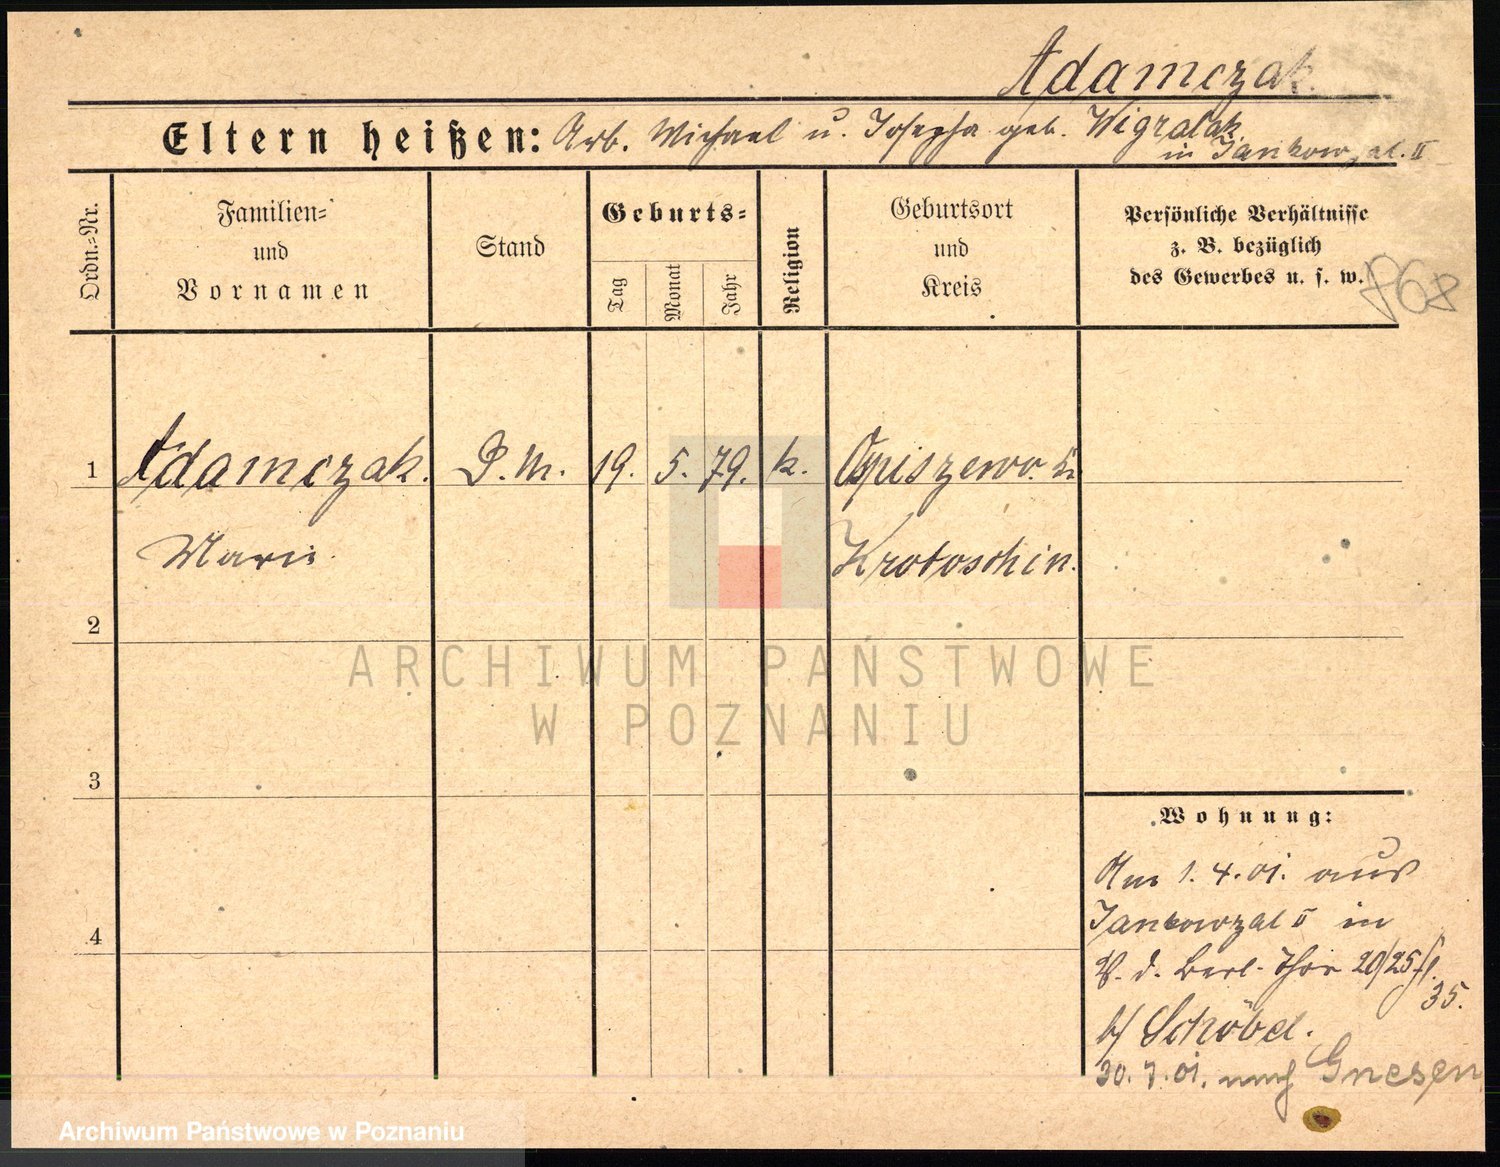 Adamczak.
Eltern heißen: Arb. Michael u. Josepha geb. Wigralak.
in Jankow, al. II
Ordn.=Nr.
Familien= und Vornamen
Stand
Geburts=
Tag
Monat
Jahr
Religion
Geburtsort und Kreis
Persönliche Verhältnisse
z. B. bezüglich
des Gewerbes u. s. w.
1 Adamczak. D.M. 19. 5. 79. k. Opiszewo. Kr.
Marie Krotoschin.
2
ARCHIWUM PAŃSTWOWE
W POZNANIU
3
4
Wohnung:
Am 1. 4. 01. aus
Jankowzal II in
V. d. Berl. Thor 20/25.
35.
b/ Schöbel.
30. 7. 01. nach Gnesen
Archiwum Państwowe w Poznaniu